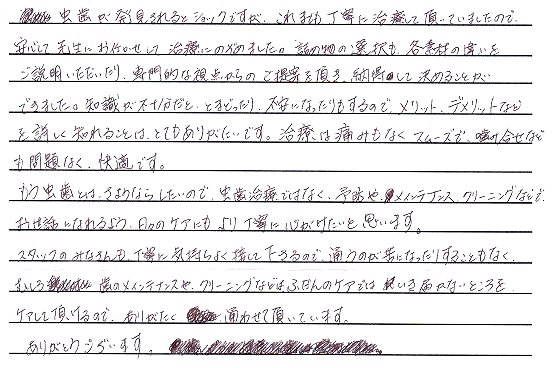 虫歯が発見されるとショックですが、これまでも丁寧に治療して頂いていましたので、
安心して先生にお任せして治療にのぞめました。詰め物の選択も、各素材の違いを
ご説明いただいたり、専門的な視点からのご提案を頂き、納得して決めることが
できました。知識が不十分だと、とまどったり、不安になったりもするので、メリット、デメリットなど
を詳しく知れることは、とてもありがたいです。治療は痛みもなくスムーズで、噛み合せなど
も問題なく、快適です。
もう虫歯とは、さよならしたいので、虫歯治療ではなく、予防や、メインテナンス、クリーニングなどで、
お世話になれるよう、日々のケアにもより丁寧に心がけたいと思います。
スタッフのみなさんも、丁寧に気持ちよく接して下さるので、通うのが苦になったりすることもなく、
むしろ歯のメインテナンスや、クリーニングなどは、ふだんのケアでは行き届かないところを
ケアして頂けるので、ありがたく通わせて頂いています。
ありがとうございます。